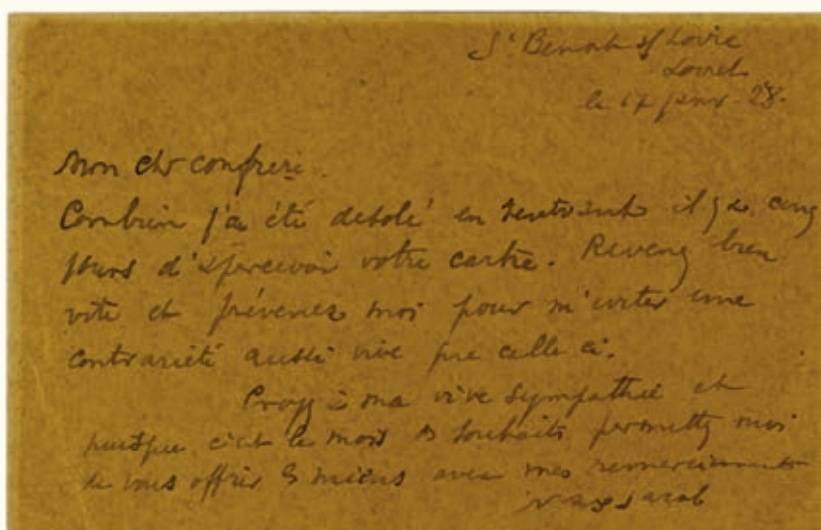 St Benoit s/ Loire
Loiret
le 17 janv. 28.
Mon cher confrere.
Combien j'ai été désolé en rentrant il y a cinq
jours d'apercevoir votre carte. Revenez bien
vite et prévenez moi pour m'eviter une
contrariété aussi vive que celle ci.
Croyez à ma vive sympathie et
puisque c'est le mois des souhaits permettez moi
de vous offrir les miens avec mes remerciements
Max Jacob